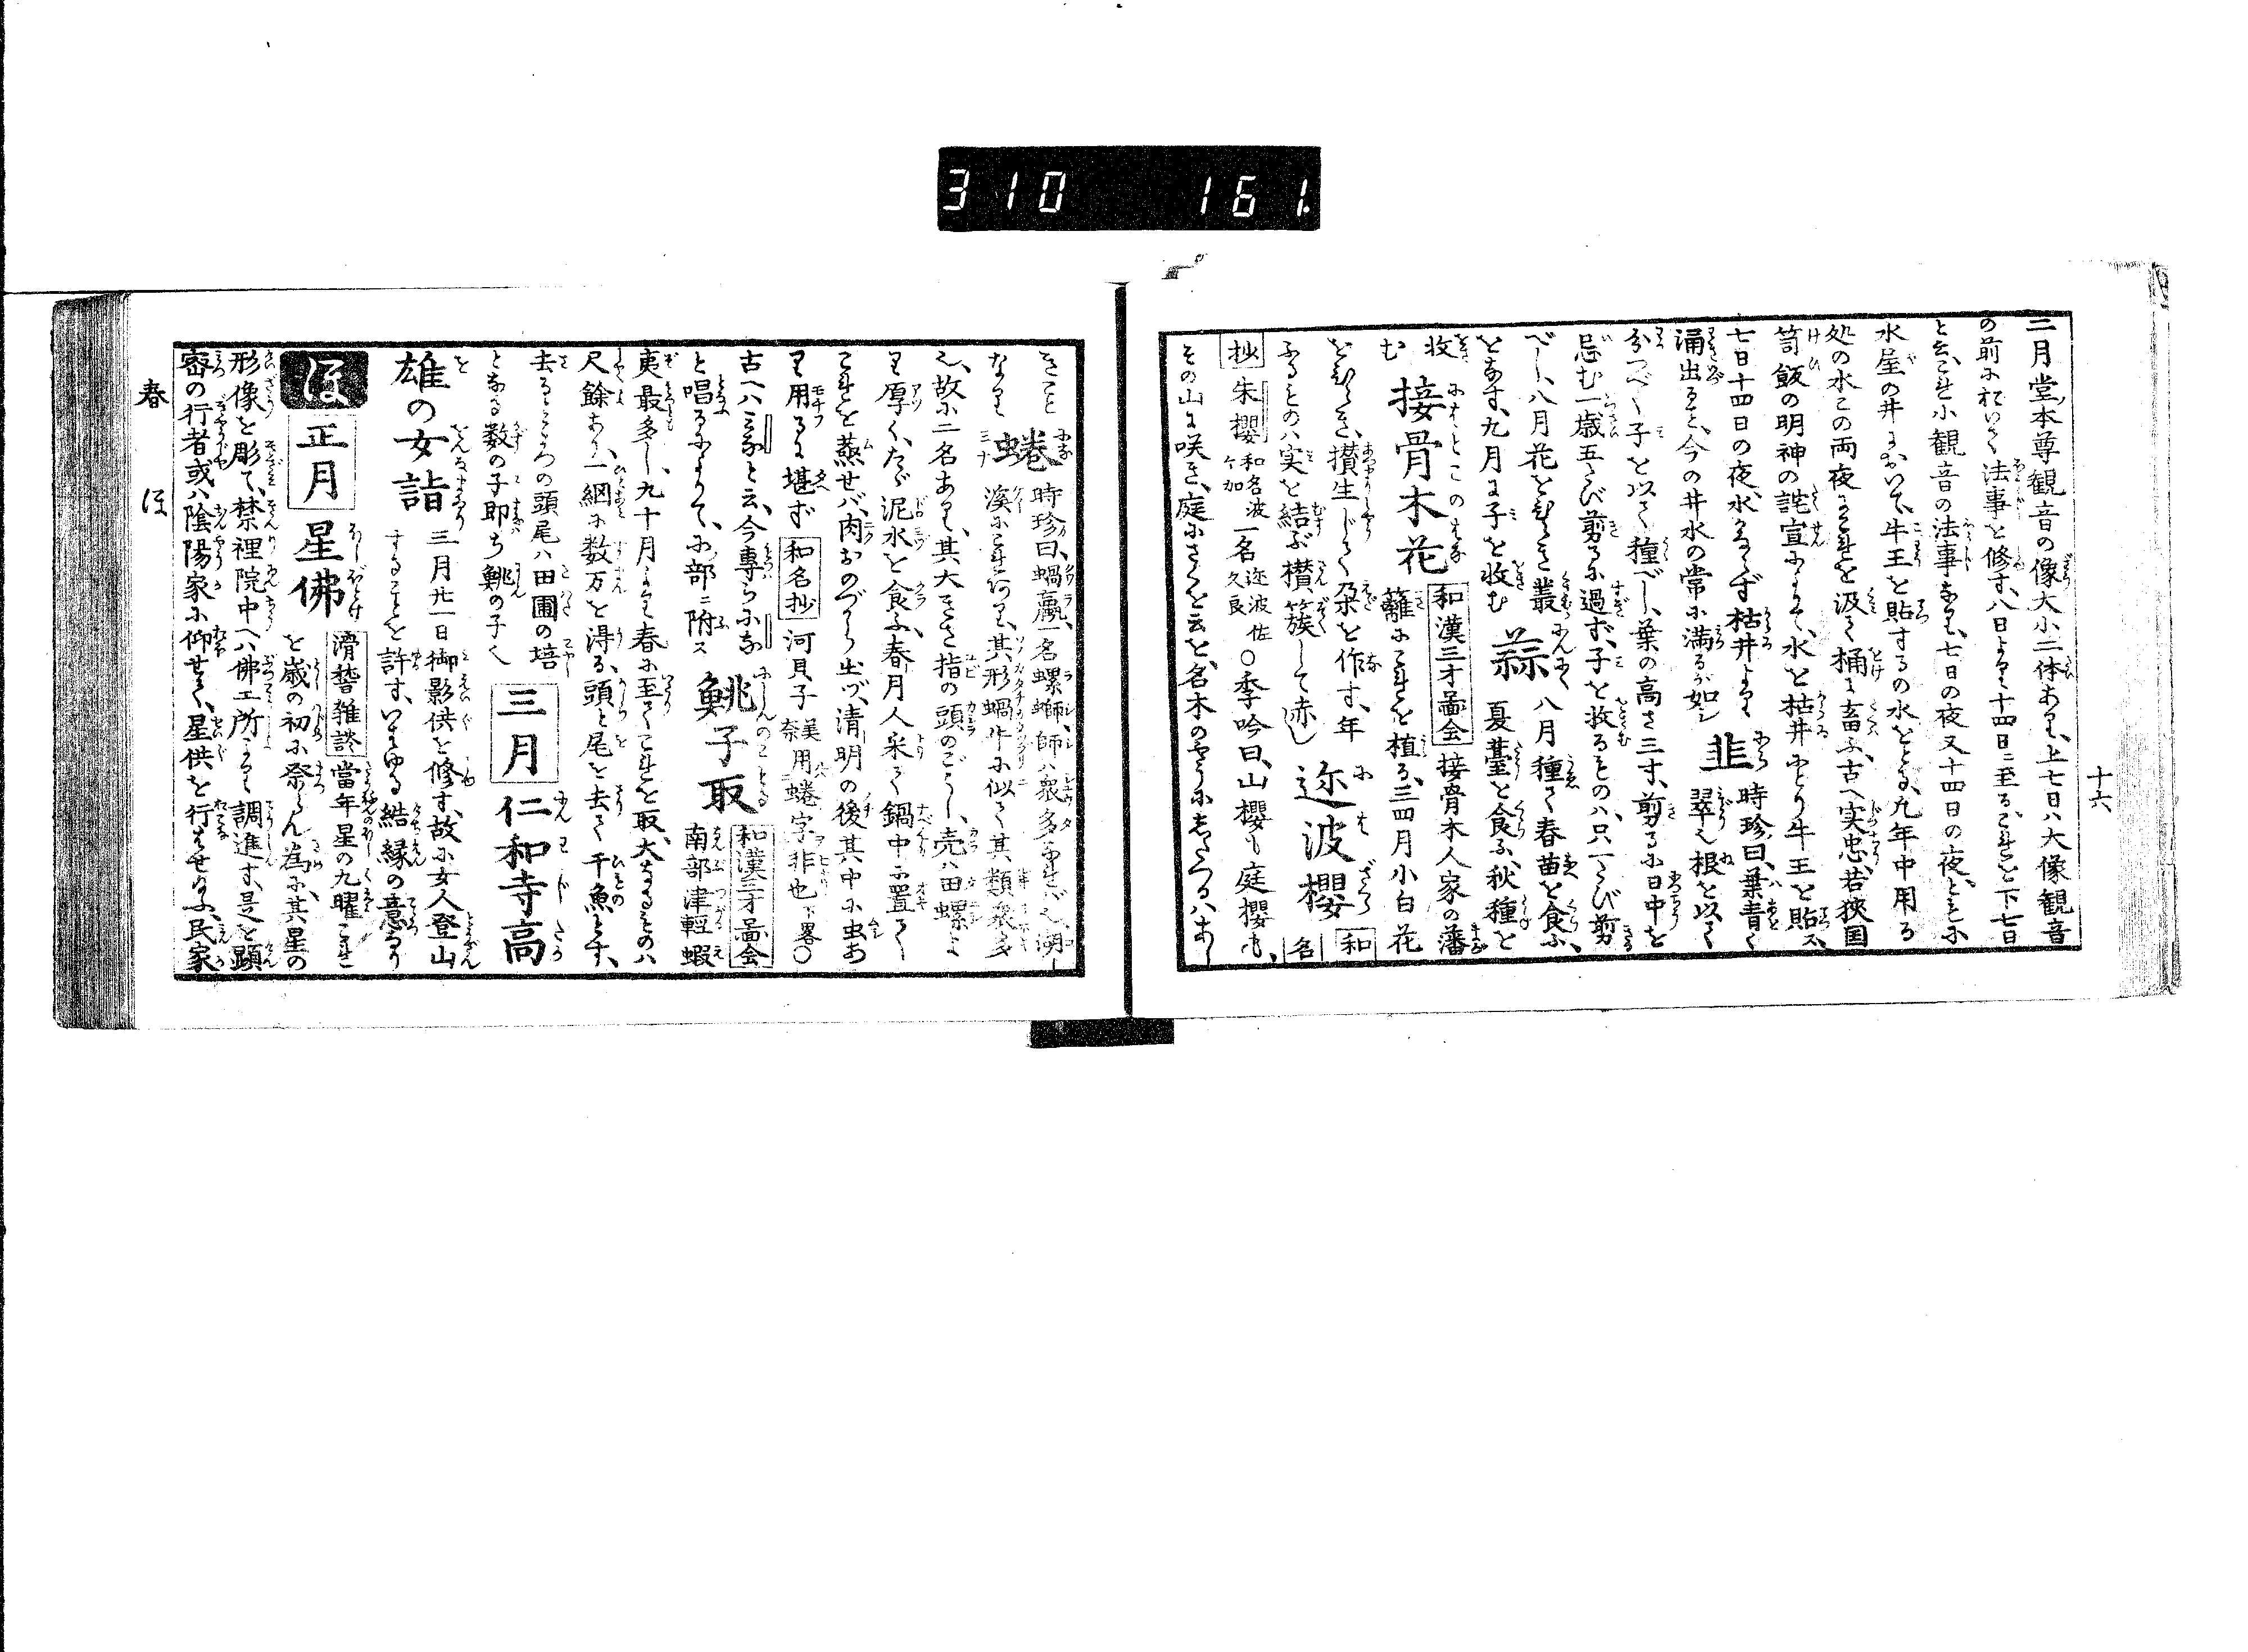 310 161.
十六
二月堂、本尊観音の像、大小二体あり、上七日ハ大像観音
の前において法事を修す、八日より十四日ニ至る、これを下七日
と云、これ小観音の法事なり、七日の夜又十四日の夜、ともに
水屋の井において、牛王を貼するの水をとる、九年中用る
処の水この両夜これを汲て桶に畜ふ、古へ実忠、若狭国
笥飯の明神の託宣によりて、水を枯井にとり牛王を貼ス、
七日十四日の夜、水かならず枯井より
涌出ると、今の井水の常に満るが如シ
韭 時珍曰、葉青く
翠也、根を以て
分つべし、子を以て種べし、葉の高さ三寸、剪るに日中を
忌む、一歳五たび剪るに過ず、子を收るものハ只一たび剪
べし、八月花をひらき叢
をなす、九月に子を收む
蒜 八月種て春苗を食ふ、
夏薹を食ふ、秋種を
收
む
接骨木花
和漢三才圖会 接骨木人家の藩
籬にこれを植る、三四月小白花
をひらき、攅生じて朶を作す、年
ふるものハ実を結ぶ、攅簇して赤し
迩波櫻
和
名
抄 朱櫻 和名波ゝ加 一名 迩波佐久良 ○季吟曰、山櫻も庭櫻も、
その山に咲き、庭にさくを云を、名木のやうにしたつるハあし
きこと
なり
蜷 時珍曰、蝸蠃、一名螺螄、師ハ衆多なれバ也、湖
溪にこれ有り、其形蝸牛に似て其類衆多
也、故に二名あり、其大きさ指の頭のごとし、売ハ田螺よ
り厚く、たゞ泥水を食ふ、春月人采て鍋中に置て
これを蒸せバ、肉おのづから出づ、清明の後其中に虫あ
り用るに堪ず 和名抄 河貝子 美奈 用蜷字非也 下畧○
古へハみなと云、今専らにな
と唱るによりて、に部ニ附ス
鯡子取 和漢三才圖会
南部津輕蝦
夷最多し、九十月より春に至てこれを取、大なるものハ
尺餘あり、一網に数万を得る、頭と尾を去て干魚とす、
去るところの頭尾ハ田圃の培
となる、数の子即ち鯡の子也
三月 仁和寺高
雄の女詣 三月廿一日御影供を修す、故に女人登山
することを許す、いはゆる結縁の意なり
ほ 正月 星佛 滑稽雑談 當年星の九曜これ
を歳の初に祭らん為に、其星の
形像を彫て、禁裡院中へハ佛工所より調進す、是を顕
密の行者或ハ陰陽家に仰せて、星供を行はせ給ふ、民家
春 ほ